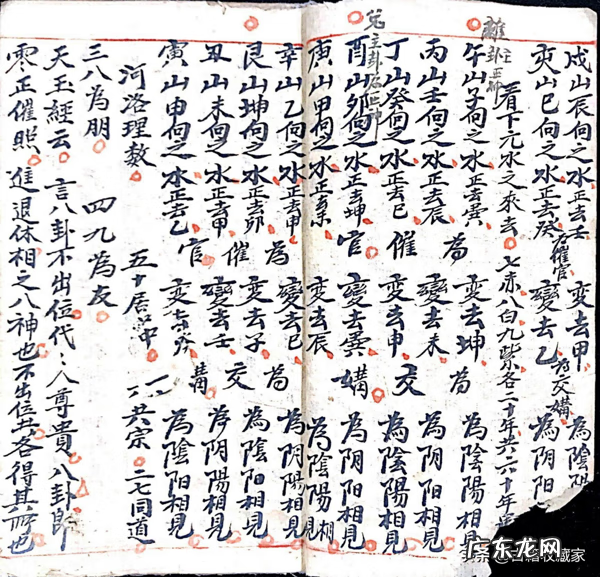 離
兌
戍山辰向之水正去壬 為催官 變去甲 為交媾 為陰陽
亥山巳向之水正去癸 變去乙 為阴阳
看下元水之來去 七赤八白九紫各二十年共六十年
午山子向之水正去巽 為 變去坤 為 為陰陽相見
丙山壬向之水正去辰 變去未 為阴阳相見
丁山癸向之水正去巳 催 變去申 交 為陰陽相見
酉山夘向之水正去坤 官 變去巽 媾 為阴阳相見
庚山甲向之水正去 變去辰 為陰陽相見
辛山乙向之水正去申 為 變去巳 為 為阴陽相見
艮山坤向之水正去卯 變去子 為陰阳相見
丑山未向之水正去甲 催 變去壬 交 為阴陽相見
寅山申向之水正去乙 官 變去 媾 為陰阳相見
河洛理数 五十居中 一六共宗 二七同道
三八為朋 四九為友
天玉經云 言八卦不出位代〻人尊貴 八卦即
零正催照 進退休相之八神也不出位其各得其所也
古籍收藏家
广东龙网